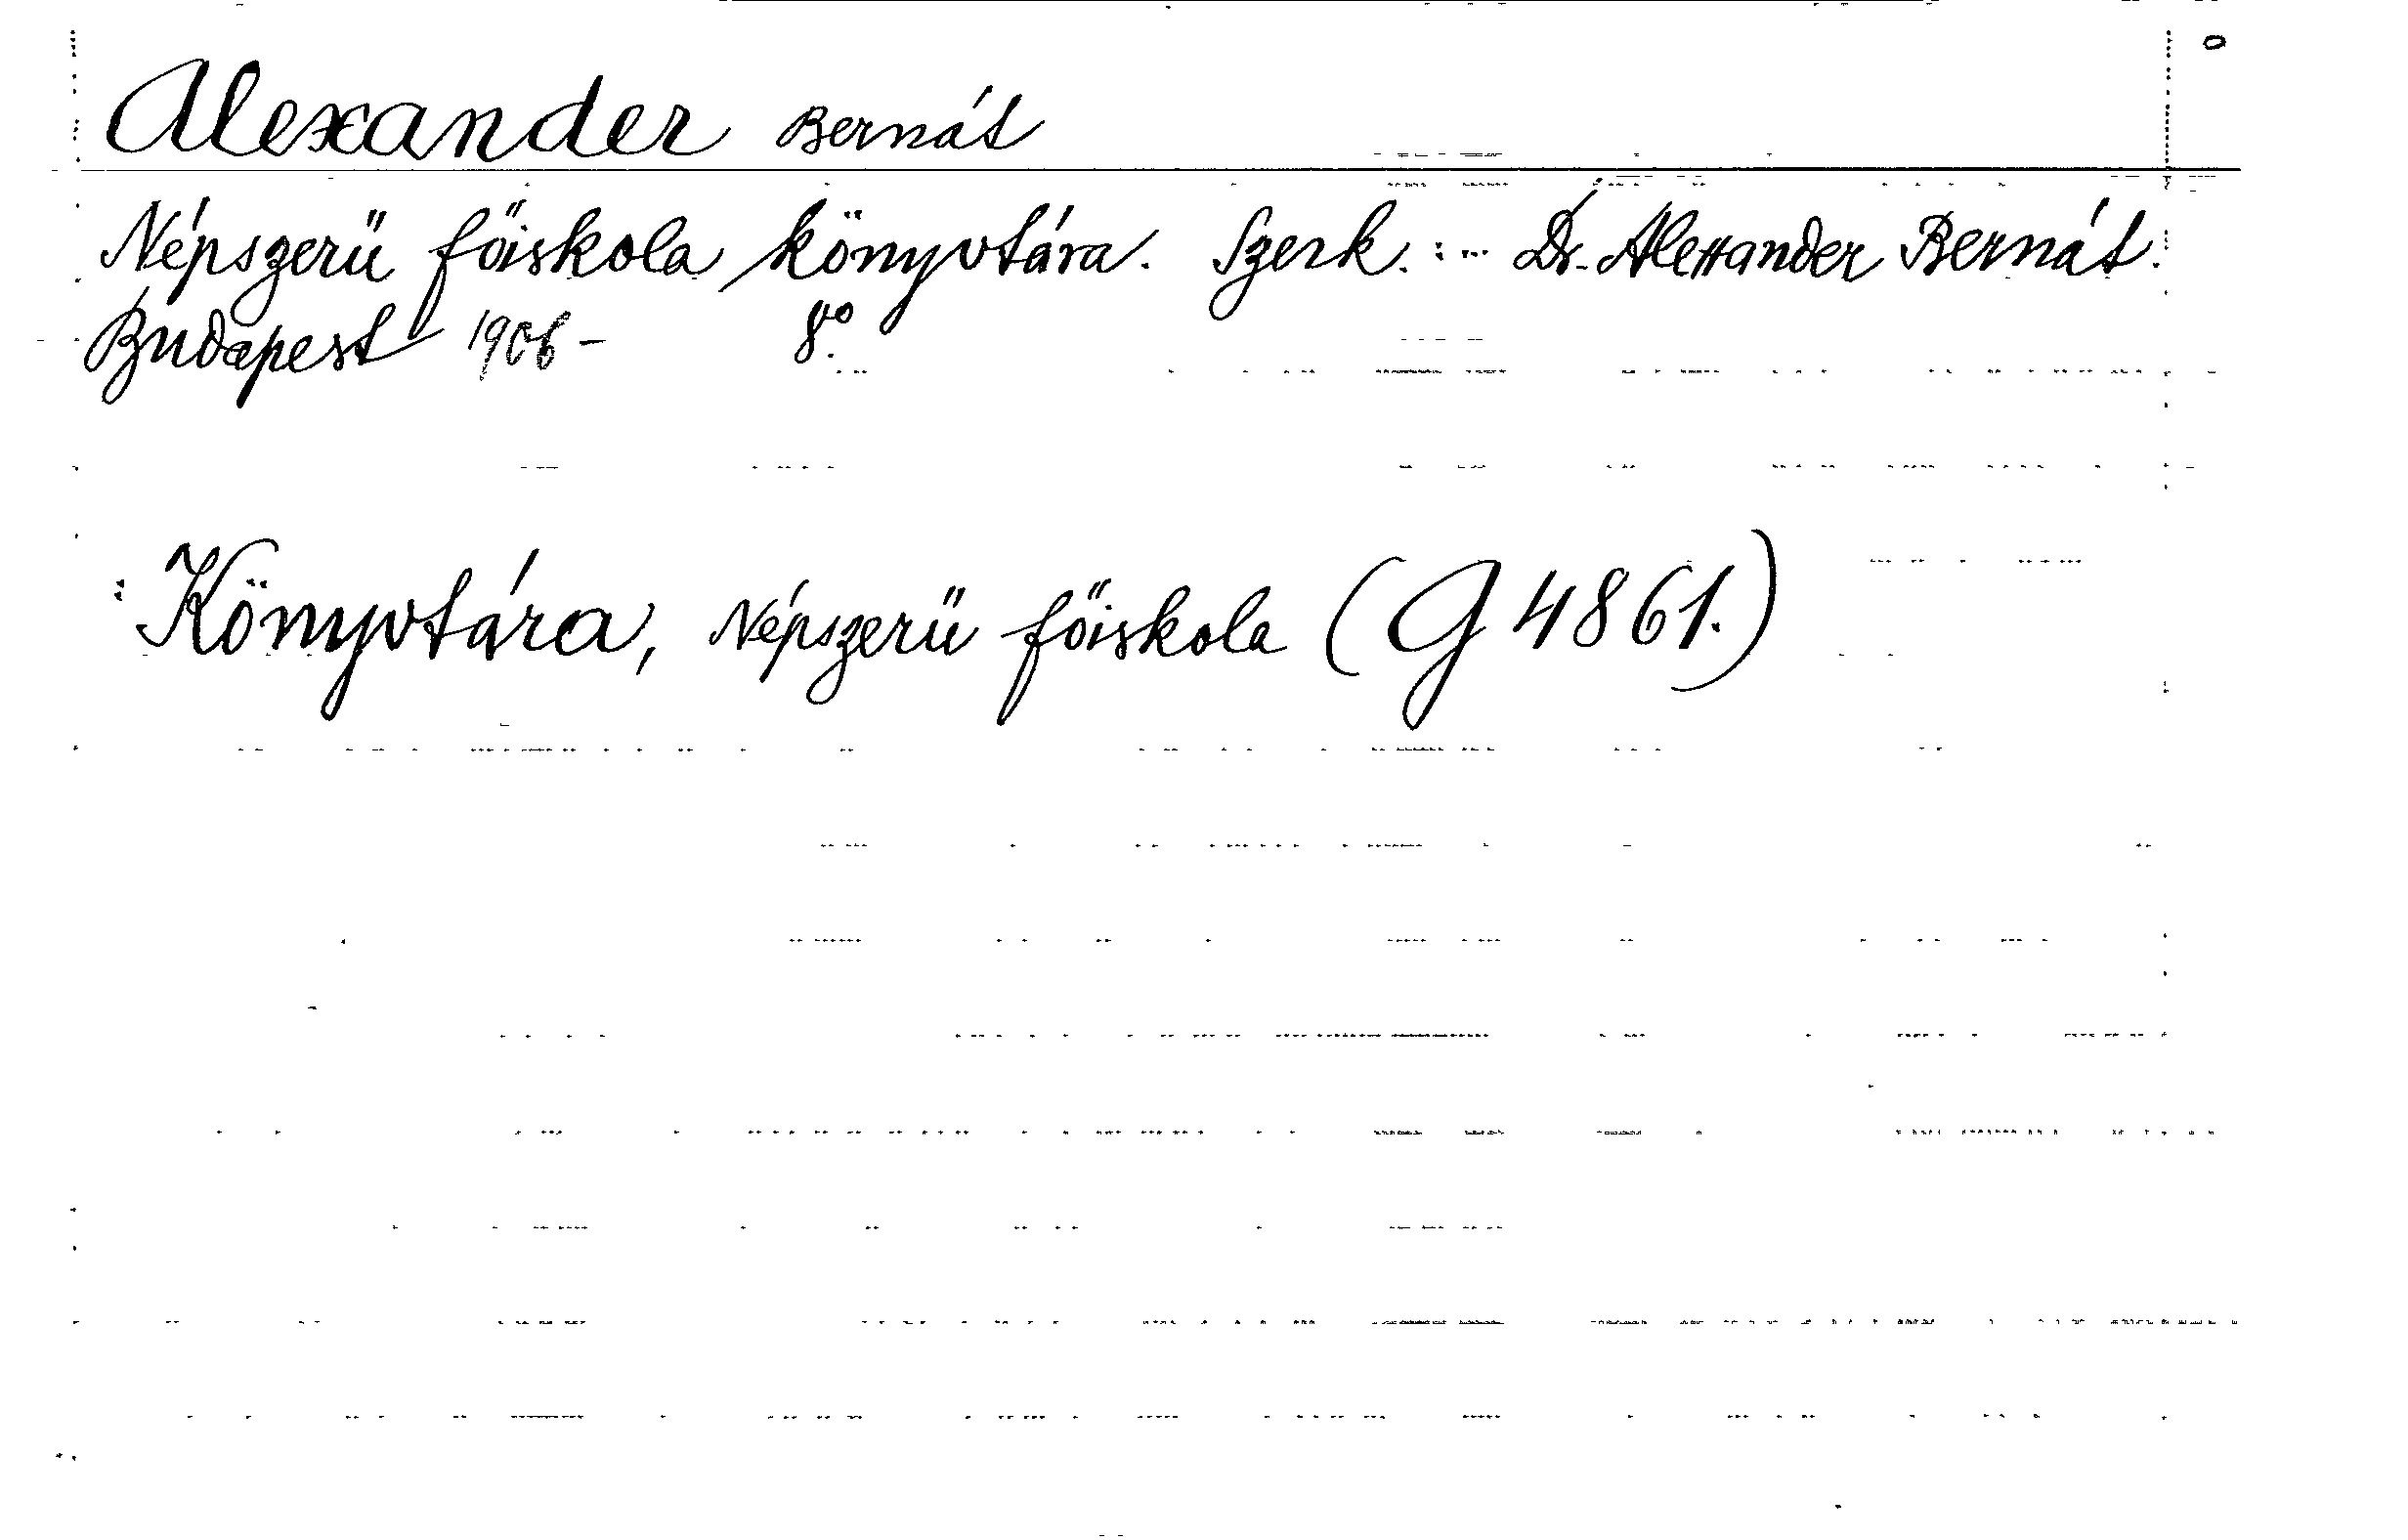 Alexander Bernát
Népszerű főiskola könyvtára. Szerk. : ... Dr. Alexander Bernát.
Budapest 1906 - 8º.
: Könyvtára, Népszerű főiskola (G 4861.)